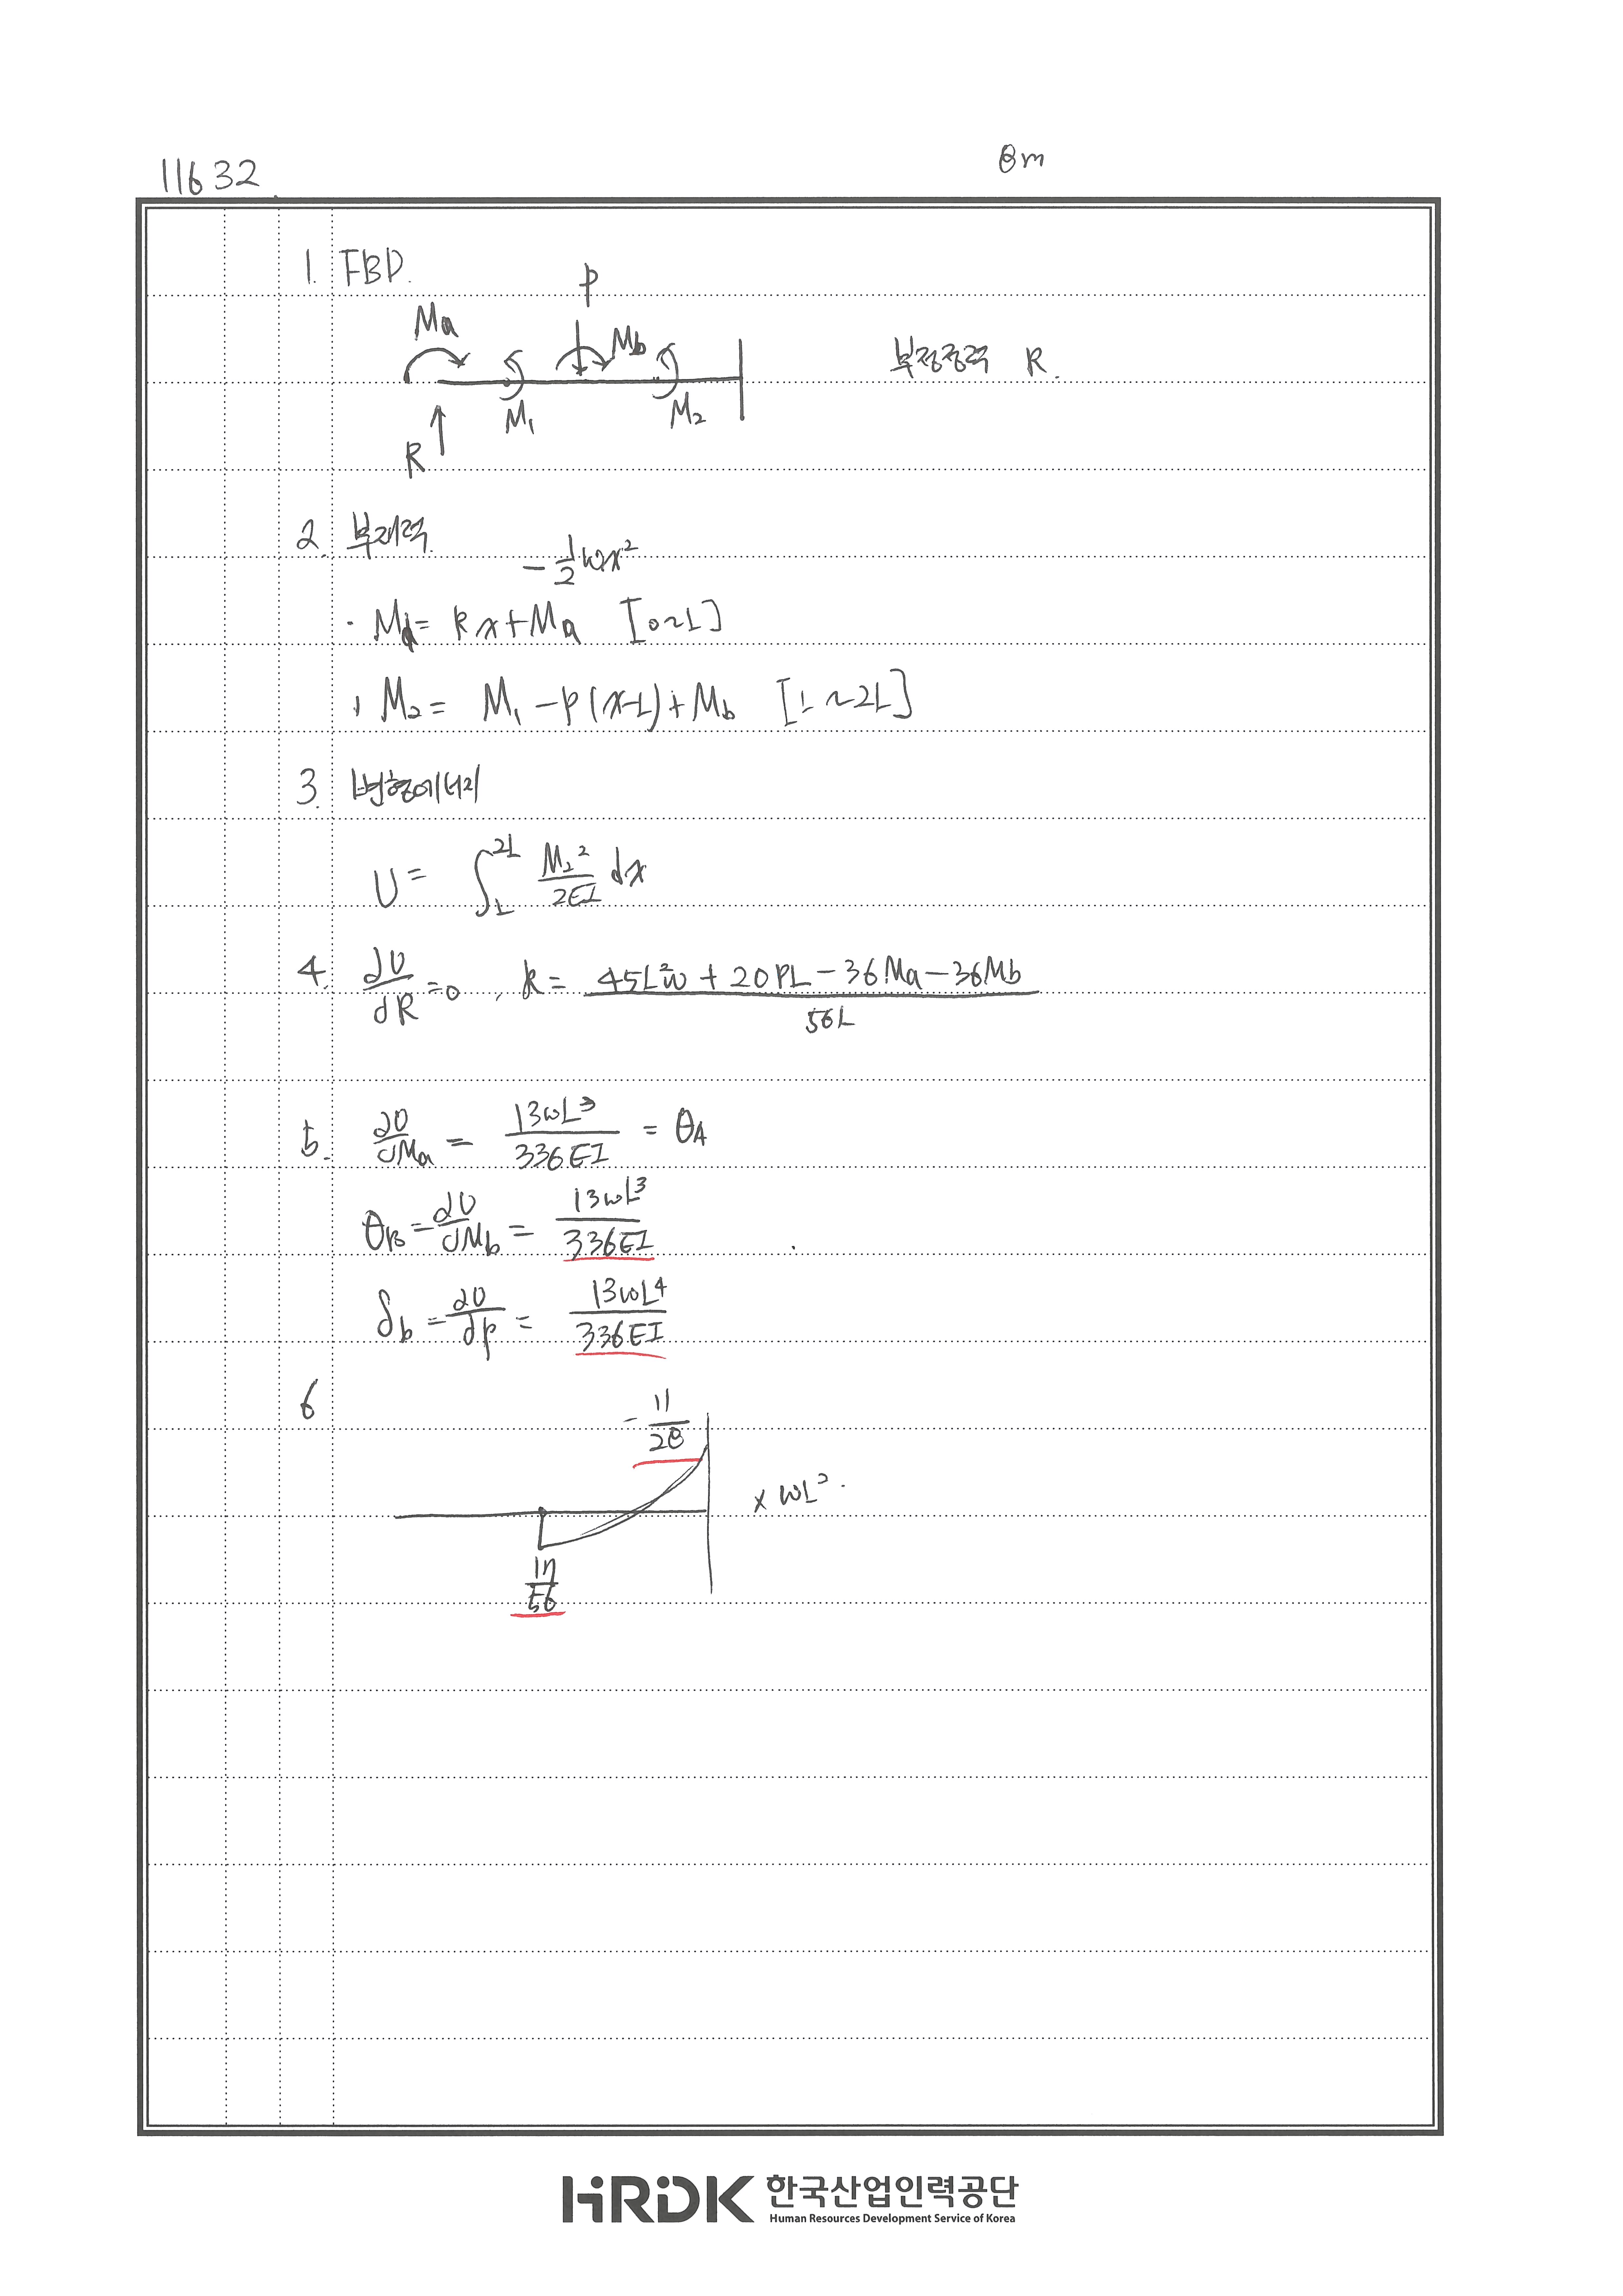 11632.
8m
1. FBD.
P
Ma
Mb
부정정력 R.
M₁
M₂
R
2. 부재력.
- 1/2 wx²
· M₁ = Rx + Ma [0~L]
· M₂ = M₁ - P(x-L) + Mb [L~2L]
3. 변형에너지
U = ∫_L^2L M₂²/2EI dx
4. ∂U/∂R = 0, R = (45L²w + 20PL - 36Ma - 36Mb)/56L
5. ∂U/∂Ma = 13wL³/336EI = θA
θB = ∂U/∂Mb = 13wL³/336EI
δb = ∂U/∂P = 13wL⁴/336EI
6
- 11/28
x wL².
17/56
HRDK 한국산업인력공단
Human Resources Development Service of Korea